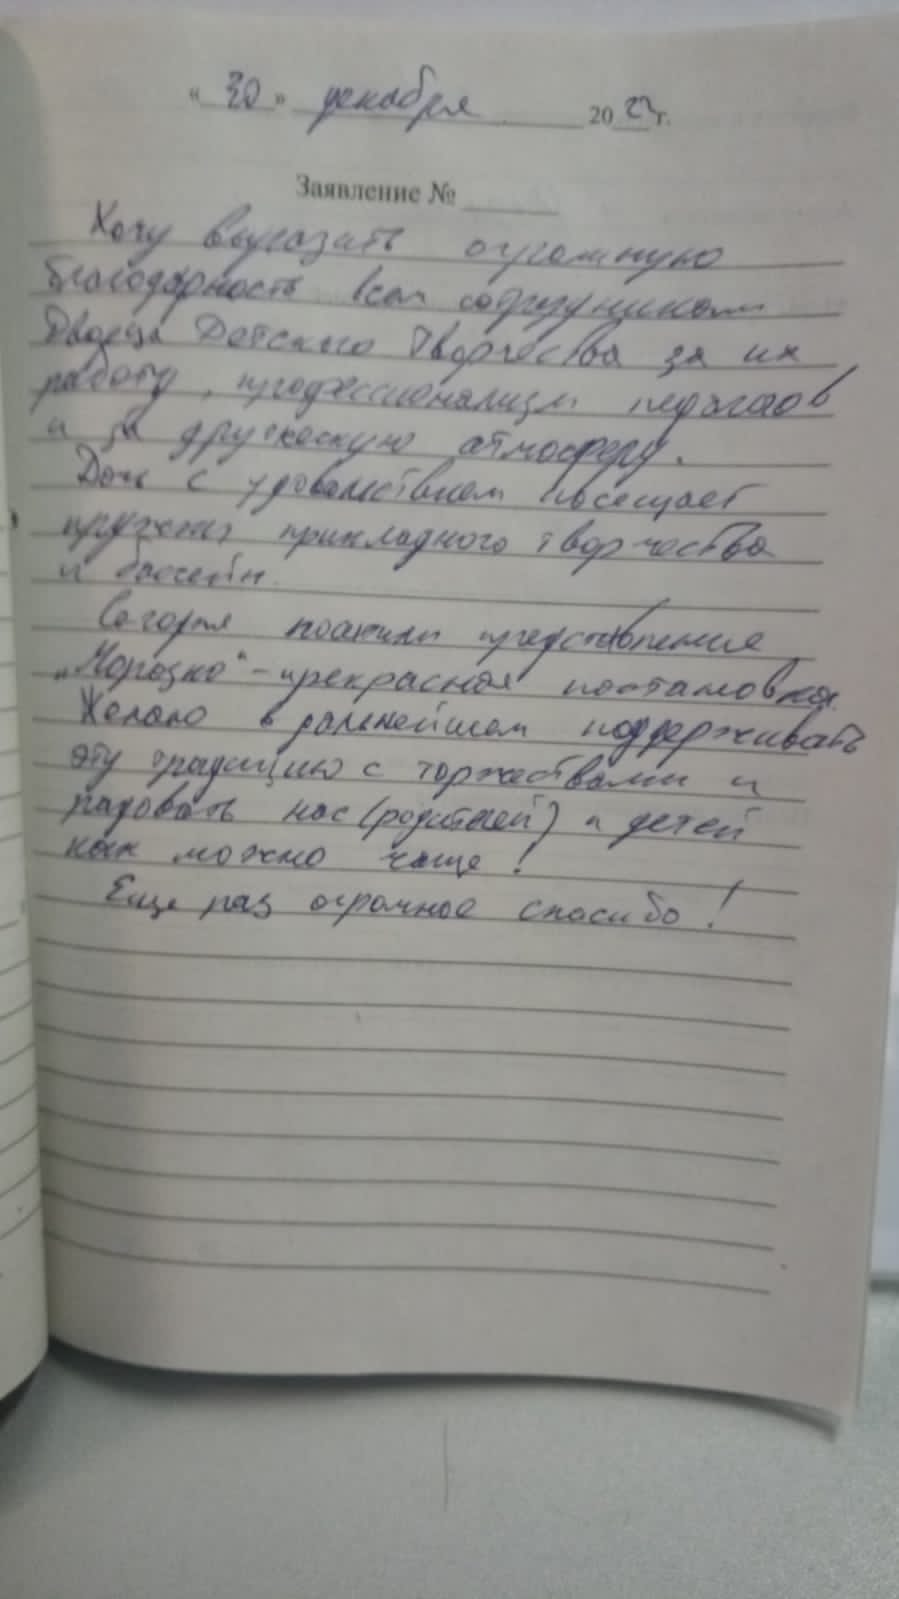 «30» декабря 20 г.
Заявление № ______
Хочу выразить огромную
благодарность всем сотрудникам
Дворца Детского Творчества за их
работу, профессионализм педагогов
и за дружескую атмосферу.
Дочь с удовольствием посещает
кружки прикладного творчества
и бассейн.
Сегодня посетили представление
"Морозко" - прекрасная постановка.
Желаю в дальнейшем поддерживать
эту традицию с торжествами и
радовать нас (родителей) и детей
как можно чаще!
Еще раз огромное спасибо!